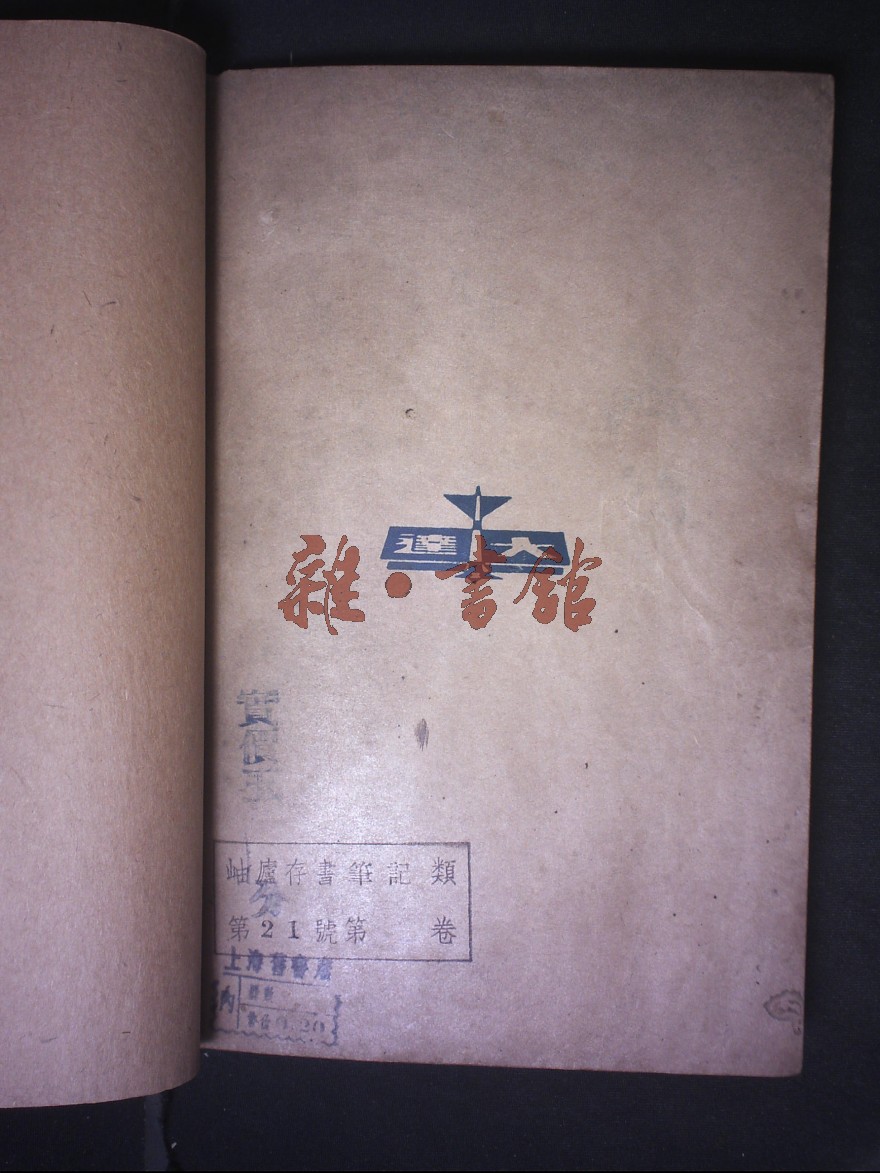 大達
雜·書館
實價
岫廬存書筆記類
第21號第 卷
上海舊書店
內
0.20